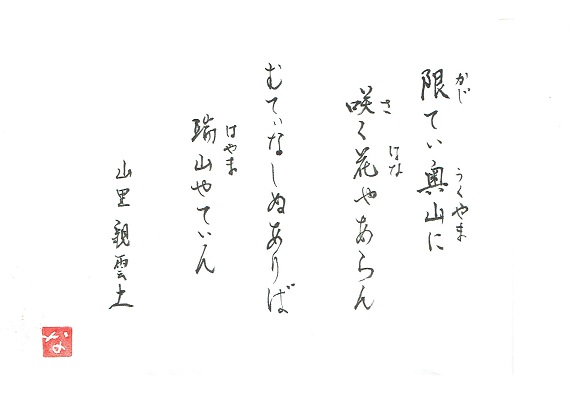 限てい奥山に
かじ
うくやま
咲く花やあらん
さ
はな
むてぃなしぬありば
瑞山やてぃん
はやま
山里親雲上
な